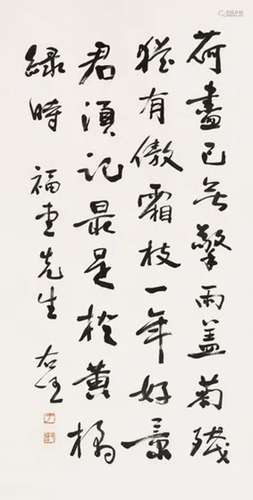 荷盡已無擎雨蓋菊殘
猶有傲霜枝一年好景
君須記最是橙黃橘
綠時 福先生 右任